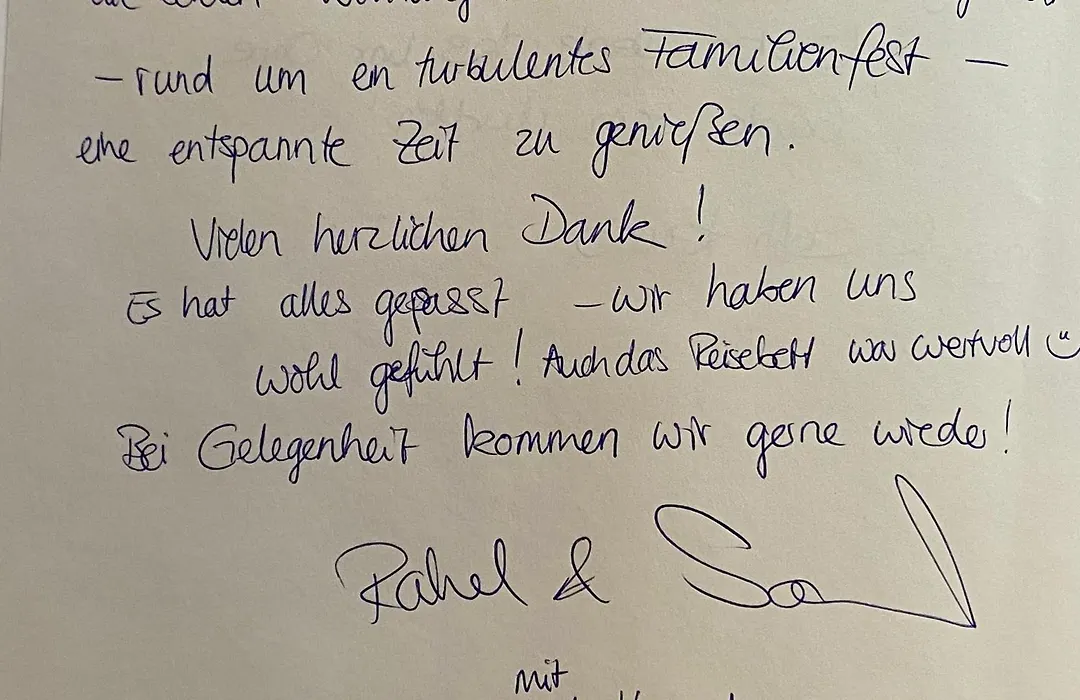 – rund um ein turbulentes Familienfest –
eine entspannte Zeit zu genießen.
Vielen herzlichen Dank!
Es hat alles gepasst – wir haben uns
wohl gefühlt! Auch das Reisebett war wertvoll
Bei Gelegenheit kommen wir gerne wieder!
Rahel &
mit